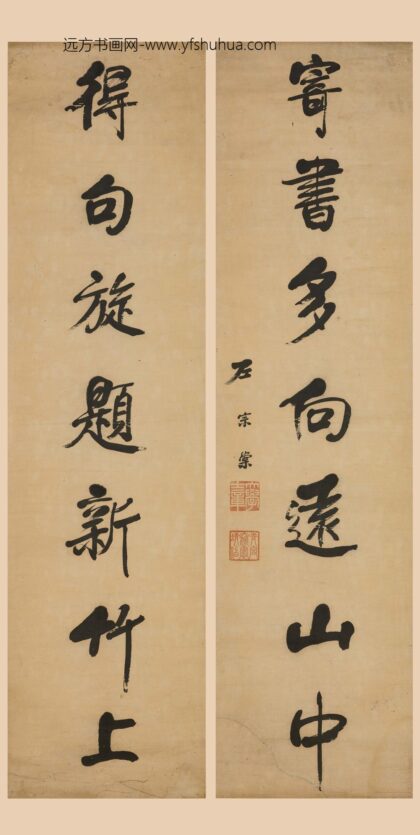 远方书画网-www.yfshuhua.com
寄書多向遠山中
左宗棠
得句旋題新竹上